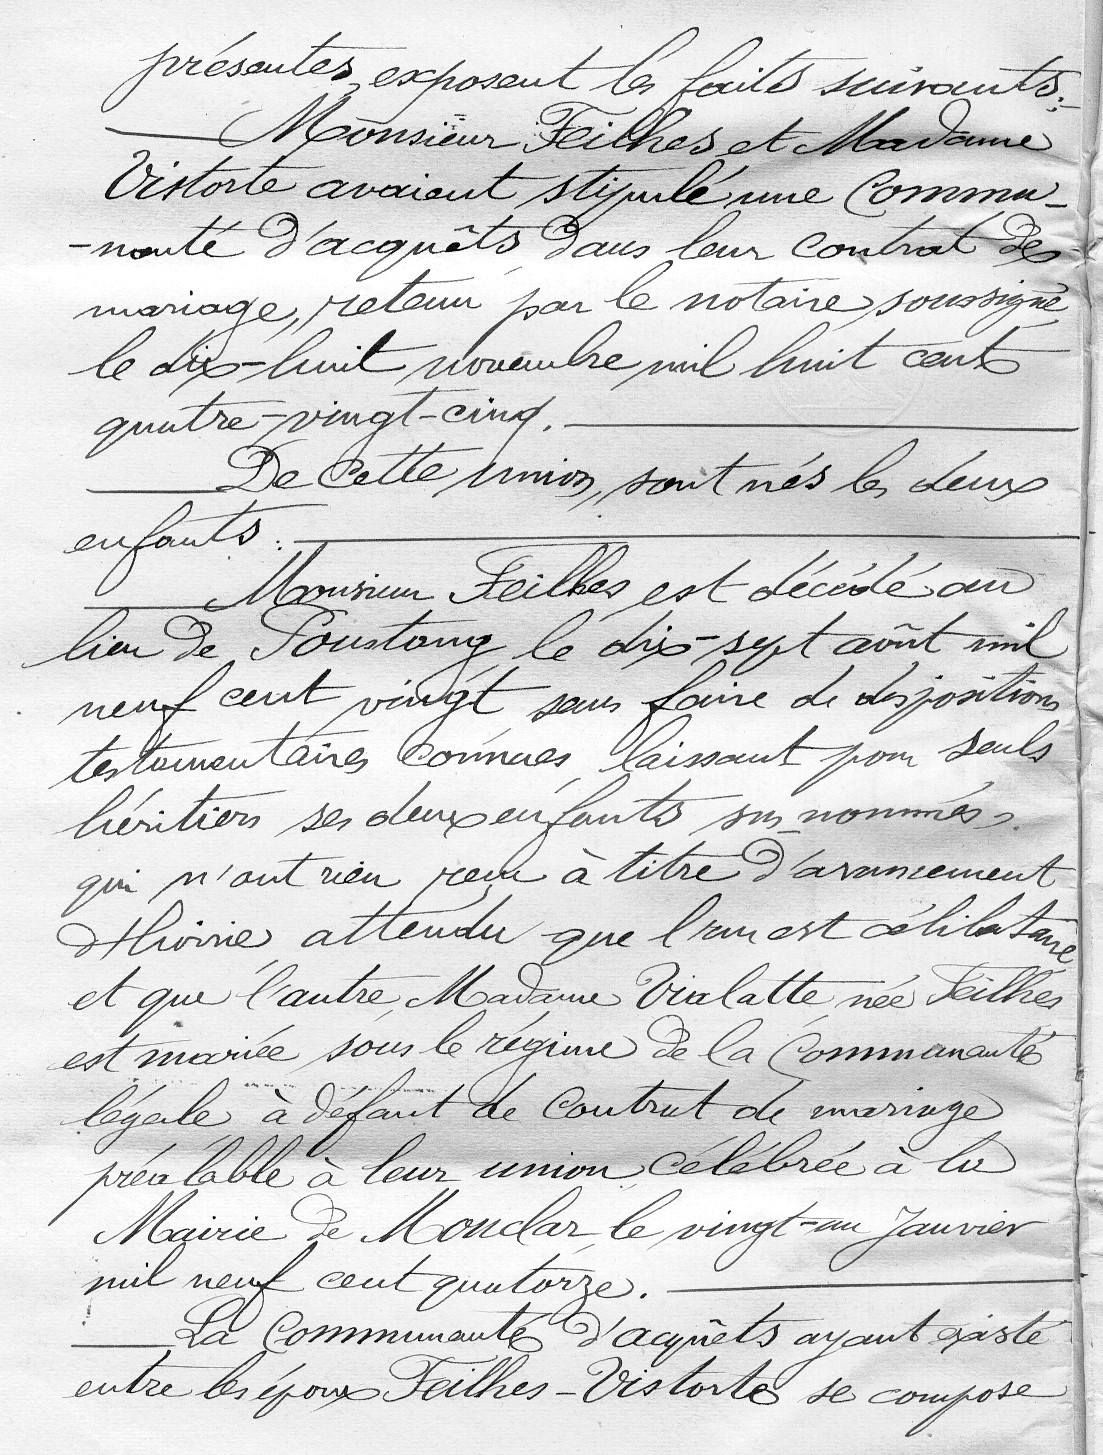 présentes, exposent les faits suivants :
Monsieur Feilhes et Madame
Vistorte avaient stipulé une Commu-
-nauté d'acquêts dans leur contrat de
mariage, retenu par le notaire soussigné
le dix-huit novembre mil huit cent
quatre-vingt-cinq.
De cette union, sont nés les deux
enfants.
Monsieur Feilhes est décédé au
lieu de Poustong le dix-sept août mil
neuf cent vingt sans faire de dispositions
testamentaires connues, laissant pour seuls
héritiers ses deux enfants sus-nommés
qui n'ont rien reçu à titre d'avancement
d'hoirie, attendu que l'un est célibataire
et que l'autre, Madame Vialatte, née Feilhes
est mariée sous le régime de la Communauté
légale à défaut de contrat de mariage
préalable à leur union célébrée à la
Mairie de Monclar, le vingt-un Janvier
mil neuf cent quatorze.
La Communauté d'acquêts ayant existé
entre les époux Feilhes-Vistorte se compose